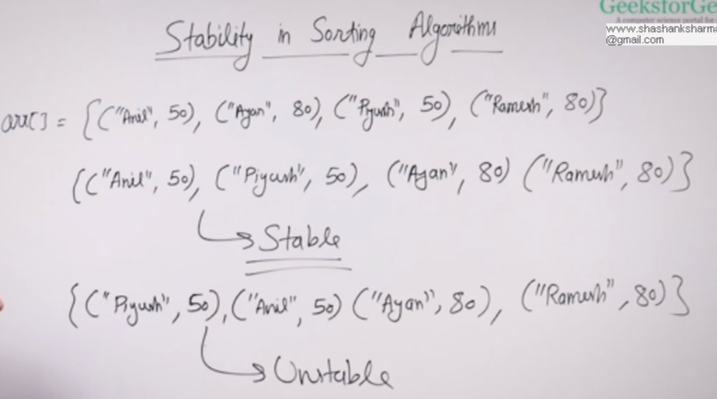 GeeksforGe
A computer science portal for
www.shashanksharma
@gmail.com
Stability in Sorting Algorithms
arr[] = {("Anil", 50), ("Ayan", 80), ("Piyush", 50), ("Ramesh", 80)}
{("Anil", 50), ("Piyush", 50), ("Ayan", 80) ("Ramesh", 80)}
Stable
{("Piyush", 50), ("Anil", 50) ("Ayan", 80), ("Ramesh", 80)}
Unstable